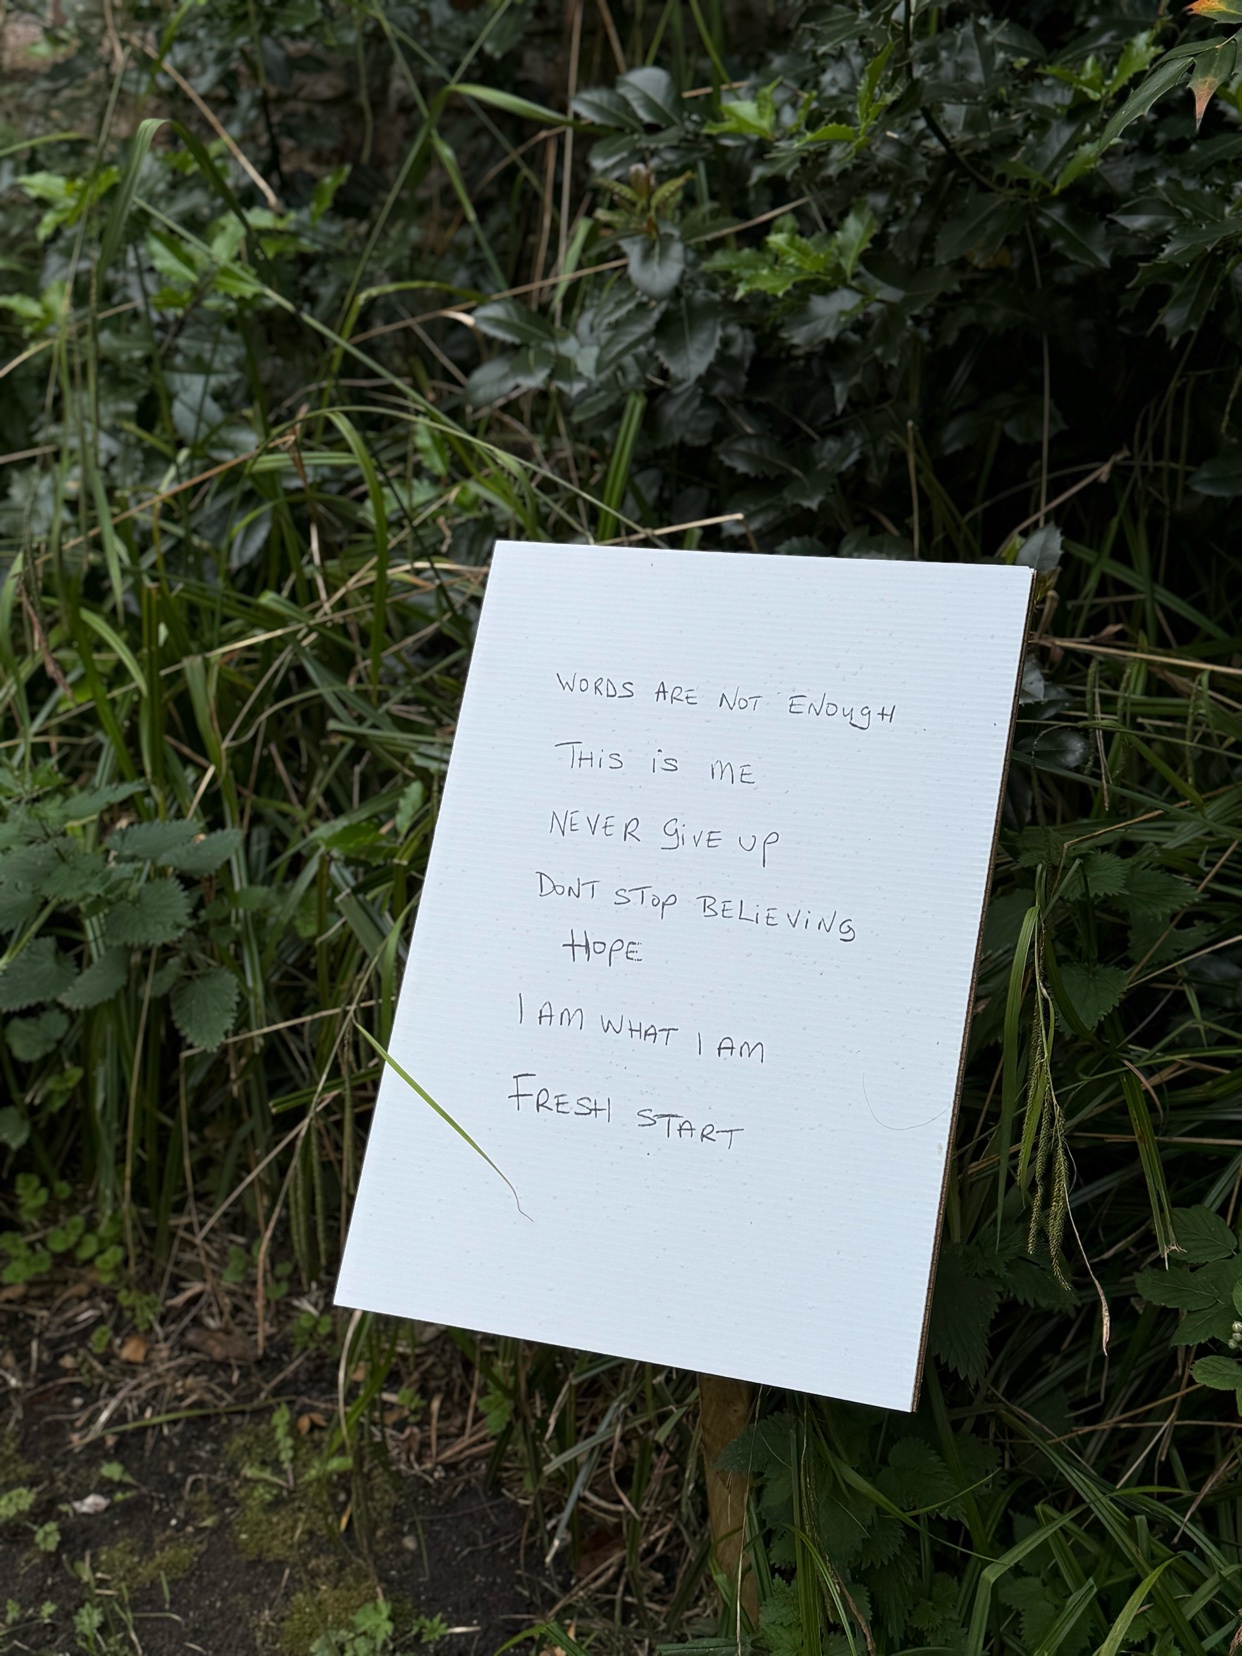 WORDS ARE NOT ENOUgH
THiS iS ME
NEVER GiVE UP
DONT STOP BELiEViNG
HOPE
I AM WHAT I AM
FRESH START